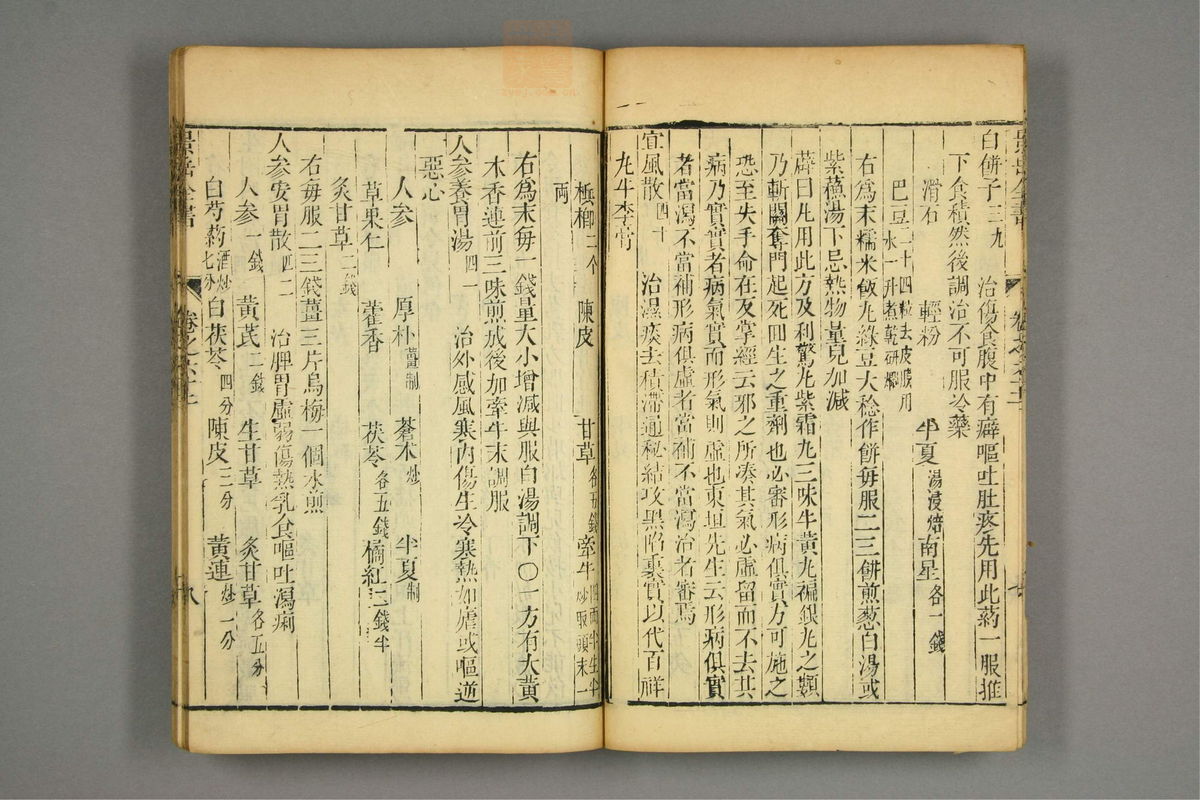 白餅子三九　治傷食腹中有癖嘔吐肚疼先用此葯一服推
下食積然後調治不可服冷藥
滑石　輕粉　半夏湯浸焙　南星各一錢
巴豆二十四粒去皮膜用水一升煮乾研爛
右爲末糯米飯丸綠豆大稔作餅每服二三餅煎葱白湯或
紫蘇湯下忌熱物量兒加減
薛曰凡用此方及利驚丸紫霜丸三味牛黄丸褊銀丸之類
乃斬關奪門起死回生之重劑也必審形病俱實方可施之
恐至失手命在反掌經云邪之所凑其氣必虛留而不去其
病乃實實者病氣實而形氣則虛也東垣先生云形病俱實
者當瀉不當補形病俱虛者當補不當瀉治者審焉
宣風散四十　治濕痰去積滯通秘結攻黑陷裏實以代百祥
丸牛李膏
檳榔二个　陳皮　甘草各五錢　牽牛四兩半生半炒取頭末一
兩
右爲末每一錢量大小增減與服白湯調下○一方有大黄
木香連前三味煎成後加牽牛末調服
人參養胃湯四一　治外感風寒内傷生冷寒熱如瘧或嘔逆
惡心
人參　厚朴薑制　蒼朮炒　半夏制
草果仁　藿香　茯苓各五錢　橘紅二錢半
炙甘草二錢
右每服二三錢薑三片烏梅一個水煎
人參安胃散四二　治脾胃虛弱傷熱乳食嘔吐瀉痢
人參一錢　黄芪二錢　生甘草　炙甘草各五分
白芍葯酒炒七分　白茯苓四分　陳皮三分　黄連炒一分
景岳全書